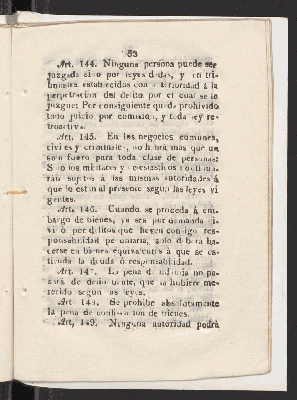 53
Art. 144. Ninguna persona puede ser
juzgada sino por leyes dadas, y en tri-
bunales establecidos con anterioridad á la
perpetracion del delito por el cual se le
juzgue: Por consiguiente queda prohivido
todo juicio por comision, y toda ley re-
troactiva.
Art. 145. En los negocios comunes,
civiles y criminales, no habrá mas que un
solo fuero para toda clase de personas:
Solo los militares y eclesiasticos continua-
rán sujetos á las mismas autoridades á
que lo estan al presente segun las leyes vi-
gentes.
Art. 146. Cuando se proceda á em-
bargo de bienes, ya sea por demanda ci-
vil ó por delitos que lleven consigo res-
ponsabilidad pecuniaria, solo debera ha-
cerse en bienes equivalentes á que se es-
tienda la deuda ó responsabilidad.
Art. 147. La pena de infamia no pa-
sará del delincuente, que la hubiere me-
recido segun las leyes.
Art. 148. Se prohibe absolutamente
la pena de confiscacion de bienes.
Art, 149. Ninguna autoridad podrá